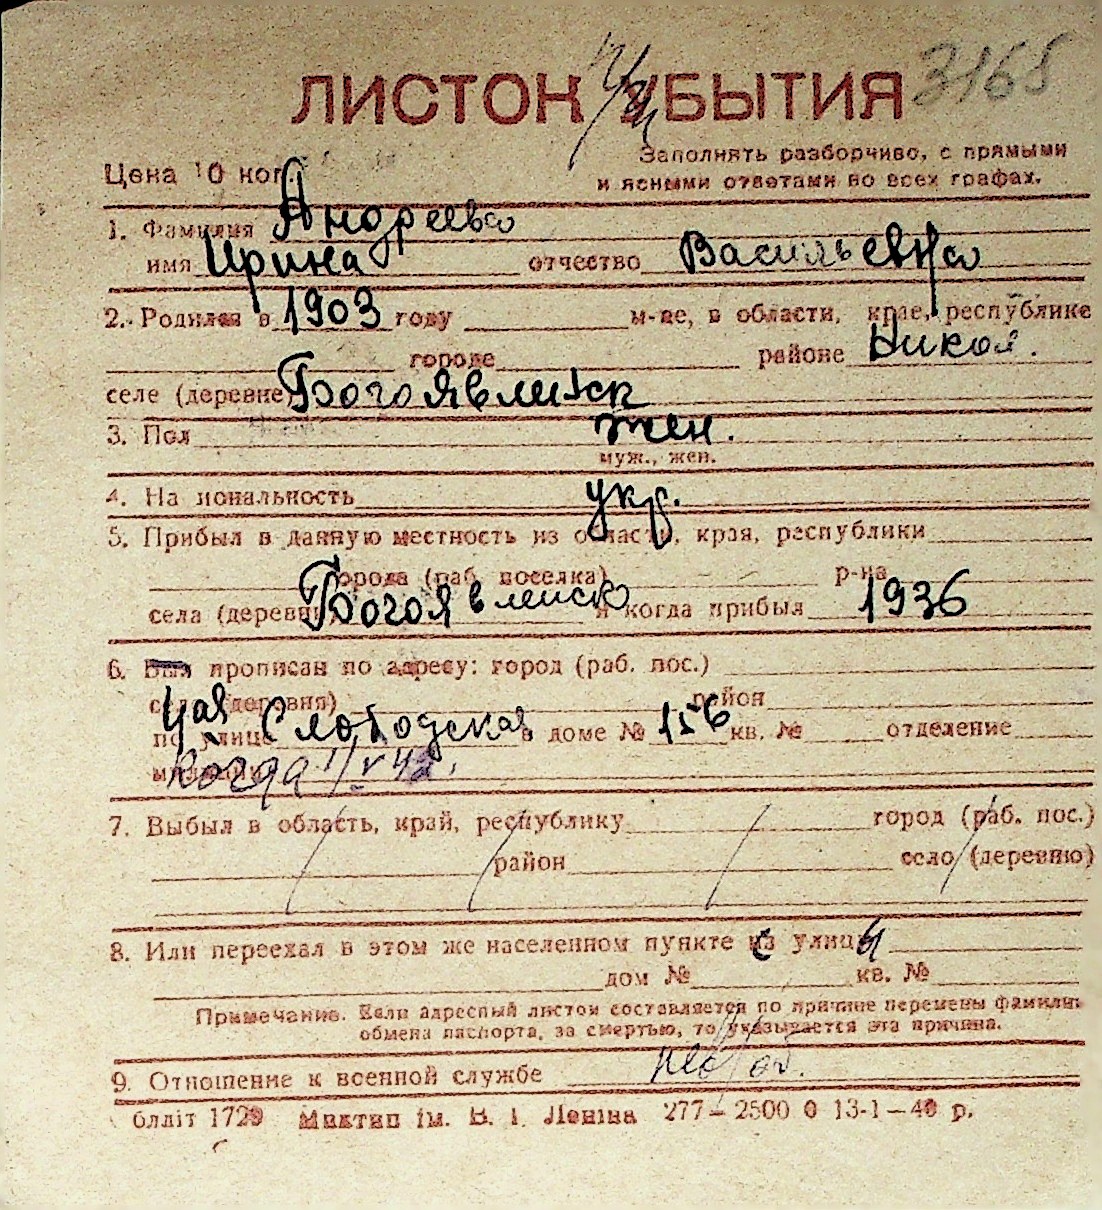 3165
ЛИСТОК УБЫТИЯ
Заполнять разборчиво, с прямыми
Цена 10 коп.
и ясными ответами во всех графах.
1. Фамилия Андреева
имя Ирина отчество Васильевна
2. Родился в 1903 году м-це, в области, крае, республике
городе районе Никол.
селе (деревне) Богоявленск
3. Пол жен.
муж., жен.
4. Национальность укр.
5. Прибыл в данную местность из области, края, республики
города (раб. поселка) р-на
села (деревни) Богоявленско и когда прибыл 1936
6. Был прописан по адресу: город (раб. пос.)
село (деревня) район
по улице 4ая Слободская в доме № 156 кв. № отделение
милиции когда 1/V 42.
7. Выбыл в область, край, республику город (раб. пос.)
район село (деревню)
8. Или переехал в этом же населенном пункте с улицы
дом № кв. №
Примечание. Если адресный листок составляется по причине перемены фамилии,
обмена паспорта, за смертью, то указывается эта причина.
9. Отношение к военной службе необ.
блліт 1729 Миктип ім. В. І. Леніна 277—2500 0 13-1—40 р.